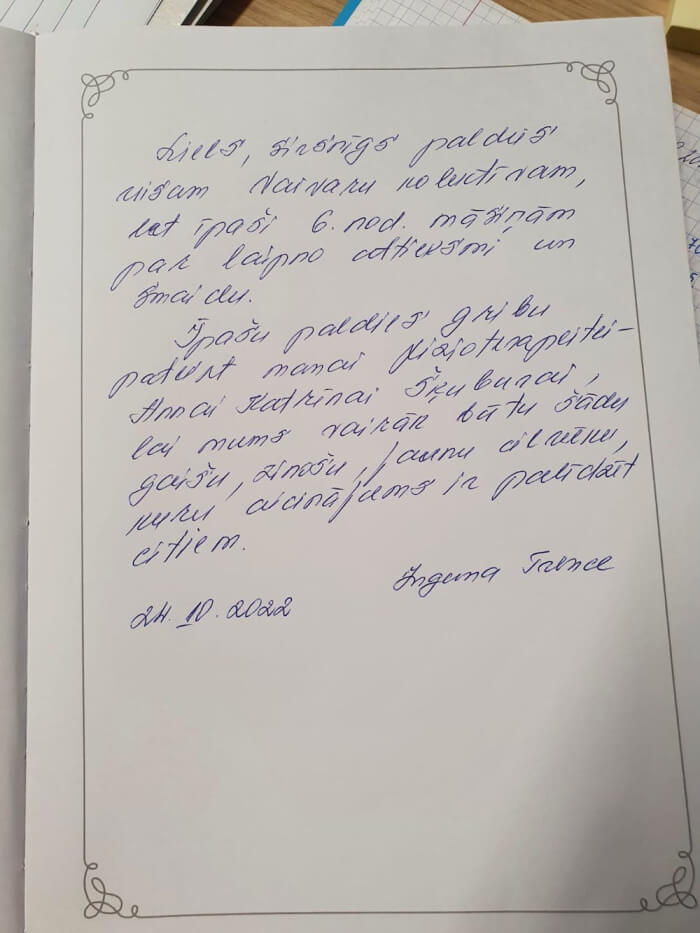 Liels, sirsnīgs paldies
visam Vaivaru kolektīvam,
bet īpaši 6. nod. māsiņām
par laipno attieksmi un
smaidu.
Īpašu paldies gribu
pateikt manai fizioterapeitei-
Annai Katrīnai Šķuburai,
lai mums vairāk būtu šādu
gaišu, zinošu, jaunu cilvēku,
kuru aicinājums ir palīdzēt
citiem.
Inguna Trence
24. 10. 2022